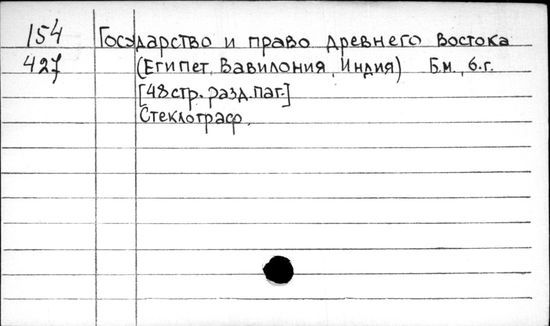 154 Государство и право древнего востока
427 (Египет, Вавилония, Индия) Б.м., б.г.
[48 стр. разд. паг.]
Стеклограф.